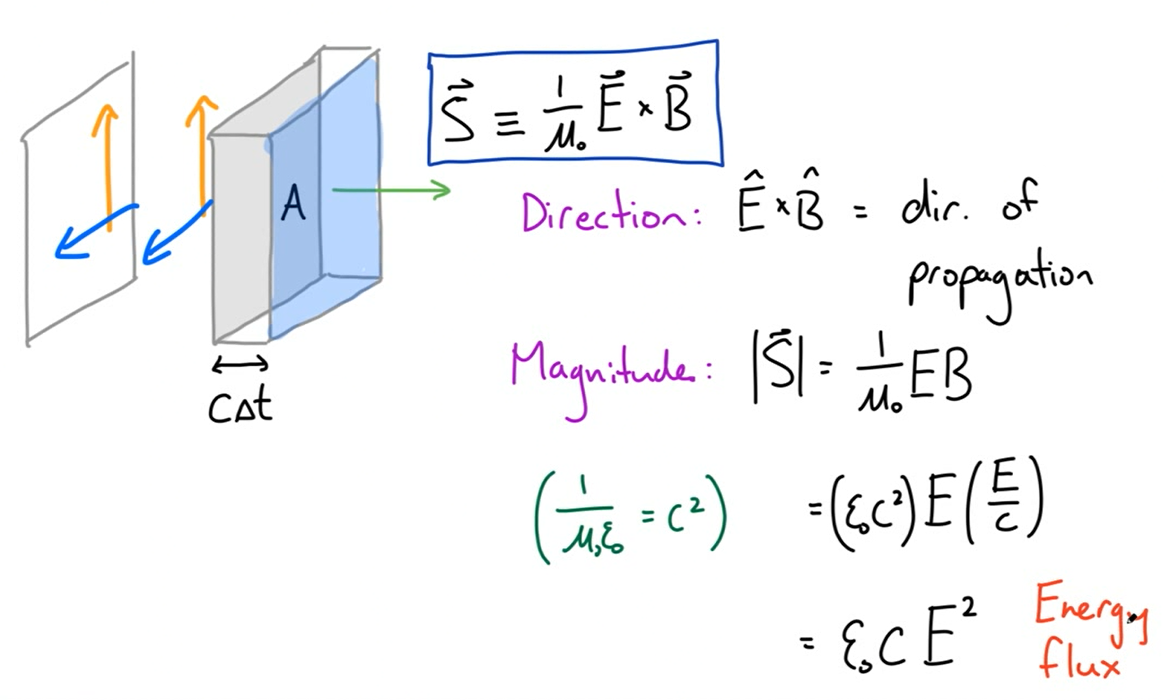 S⃗ ≡ 1/μ₀ E⃗ × B⃗
A
Direction: Ê × B̂ = dir. of
propagation
Magnitude: |S⃗| = 1/μ₀ EB
cΔt
(1/μ₀ε₀ = c²) = (ε₀c²) E (E/c)
= ε₀ c E² Energy
flux